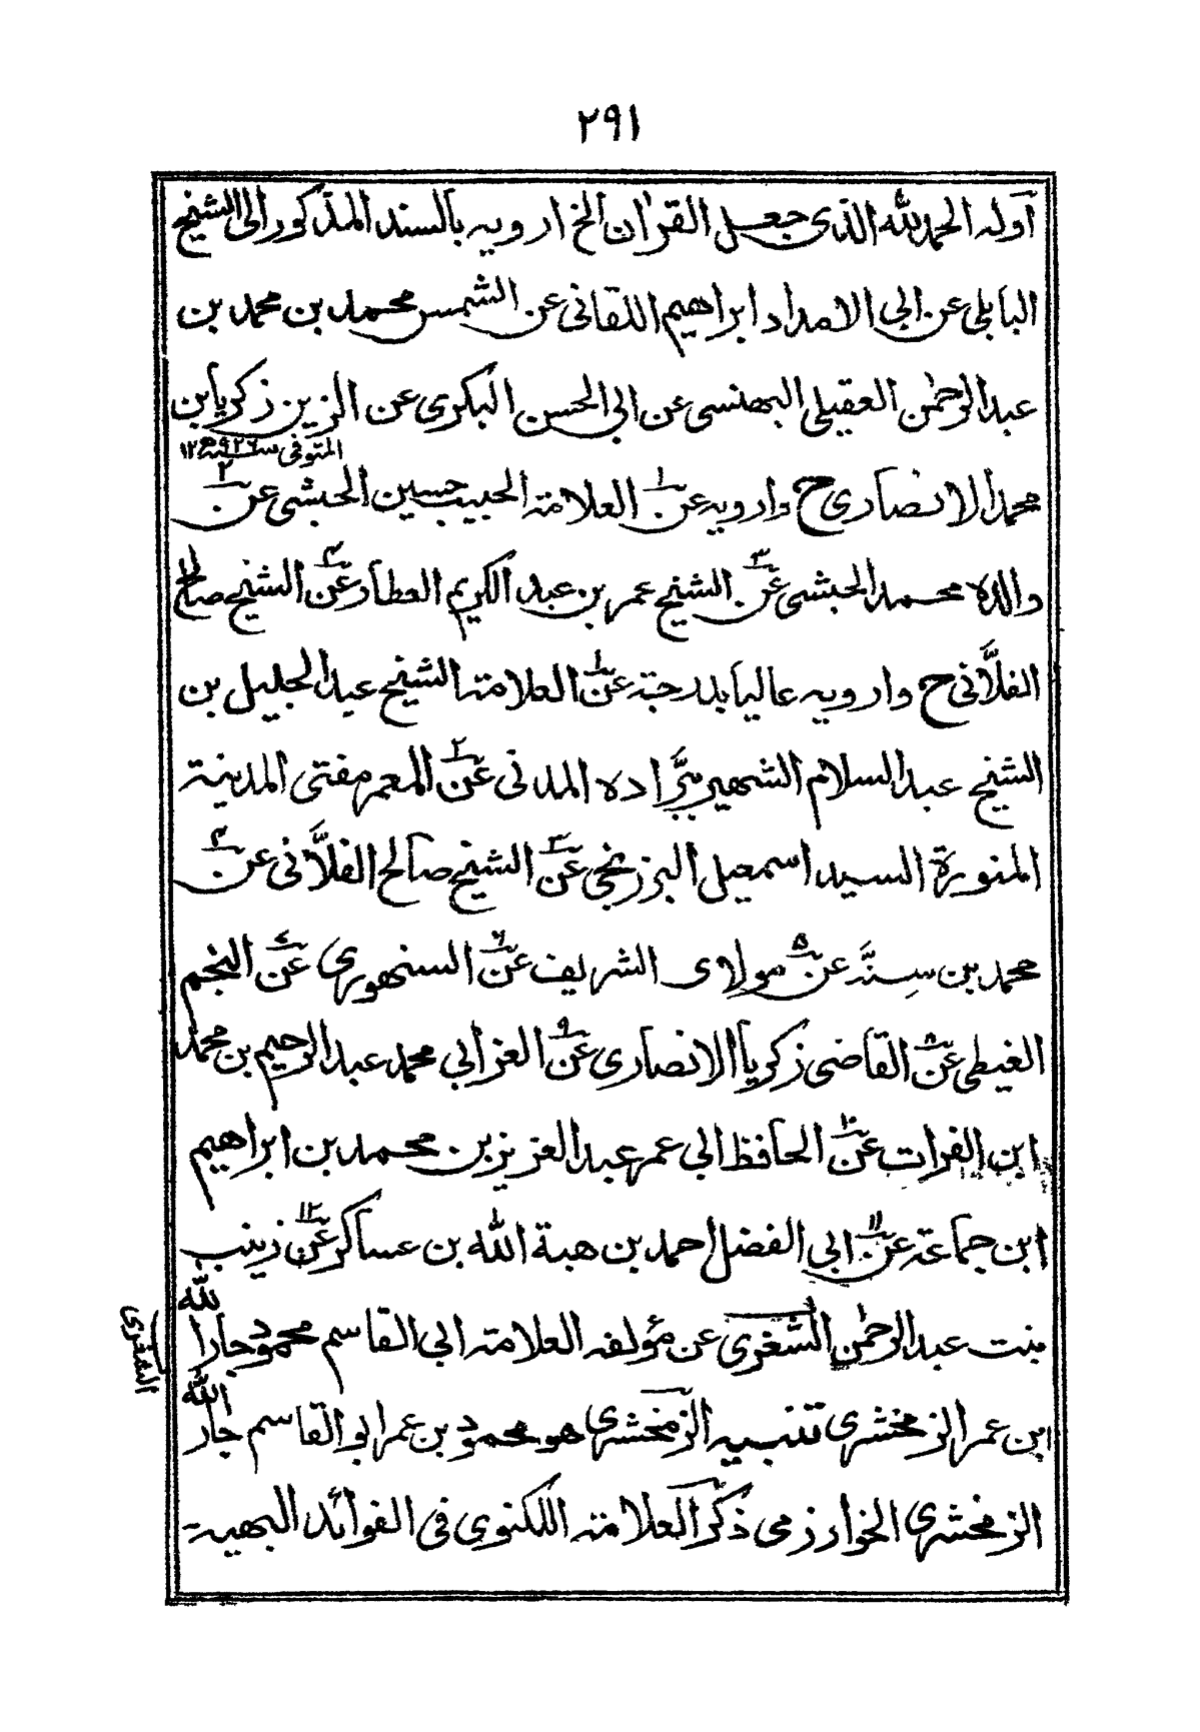 ٢٩١
أوله الحمد لله الذى جعل القرآن الخ ارويه بالسند المذكور الى الشيخ
البابلى عن ابي الامداد ابراهيم اللقانى عن الشمس محمد بن محمد بن
عبد الرحمٰن العقيلى البهنسى عن ابي الحسن البكرى عن الزين زكريا بن
المتوفى سنة ٩٢٦ھ ١٢
محمد الانصارى ح وارويه عن ١ العلامة الحبيب حسين الحبشى عن ٢
والده محمد الحبشى عن ٣ الشيخ عمر بن عبد الكريم العطار عن ٤ الشيخ صالح
الفلَّانى ح وارويه عاليا بدرجة عن ١ العلامة الشيخ عبد الجليل بن
الشيخ عبد السلام الشهير ببرَّاده المدنى عن ٢ المعمر مفتى المدينة
المنورة السيد اسمعيل البرزنجى عن ٣ الشيخ صالح الفلَّانى عن ٤
محمد بن سِنَّه عن ٥ مولاى الشريف عن ٦ السنهورى عن ٧ النجم
الغيطى عن ٨ القاضى زكريا الانصارى عن ٩ العز ابي محمد عبد الرحيم بن محمد
ابن الفرات عن ١٠ الحافظ ابي عمر عبد العزيز بن محمد بن ابراهيم
ابن جماعة عن ١١ ابي الفضل احمد بن هبة الله بن عساكر عن ١٢ زينب
بنت عبد الرحمٰن الشغرى عن مؤلفه العلامة ابي القاسم محمود جار الله
الشعرى
ابن عمر الزمخشرى تنبيه الزمخشرى هو محمود بن عمر ابو القاسم جار الله
الزمخشرى الخوارزمى ذكر العلامة اللكنوى فى الفوائد البهية